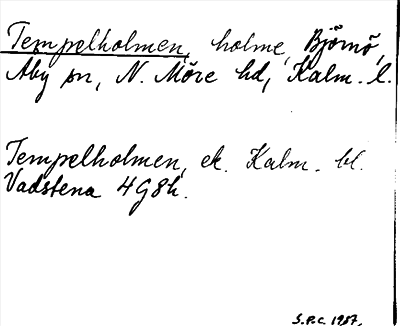 Tempelholmen, holme, Björnö,
Åby sn, N. Möre hd, Kalm. l.
Tempelholmen, ek. Kalm. bl.
Vadstena 4G8h.
S.P.C. 1957.